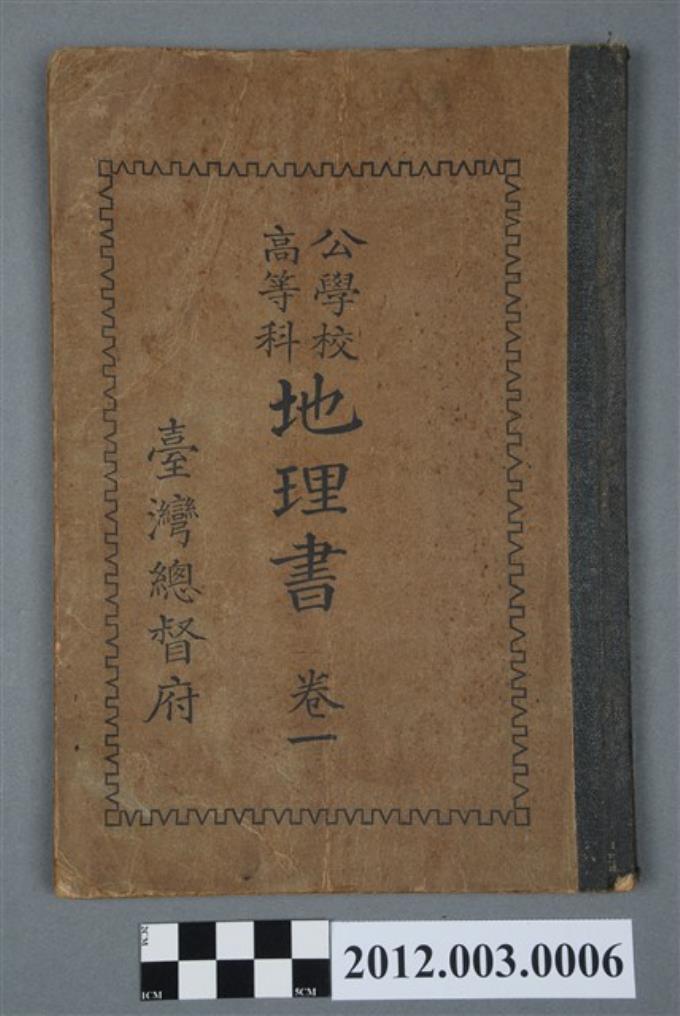 公學校
高等科
地理書 卷一
臺灣總督府
2CM
1CM
5CM
2012.003.0006